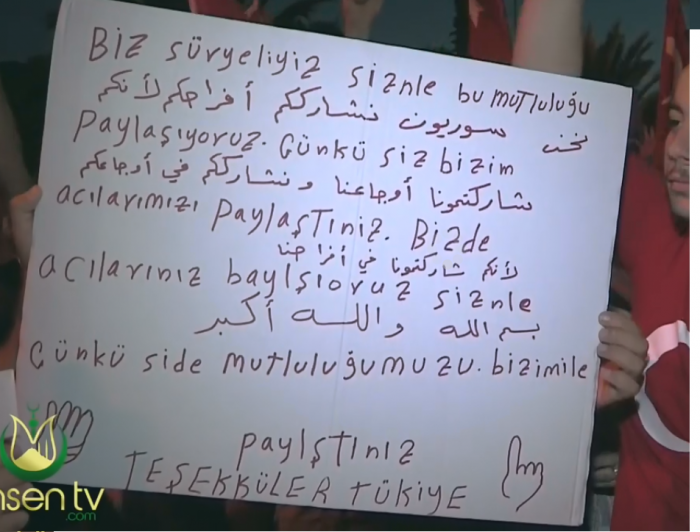 BİZ SÜryeliyiz sizNle bu mutluluğu
نحن سوريون نشارككم أفراحكم لأنكم
PaylaşıyoruZ. Günkü siz bizim
تشاركتمونا أوجاعنا ونشارككم في أوجاعكم
acılarımızı PaylaşTınız. Bizde
لأنكم شاركتمونا في أفراحنا
acılarınız baylşıoruz siznle
بسم الله والله أكبر
Günkü side mutluluğumuzu. bizimile
paylşTınız
TEŞEKKÜLER TÜKİYE
nsen tv
.com